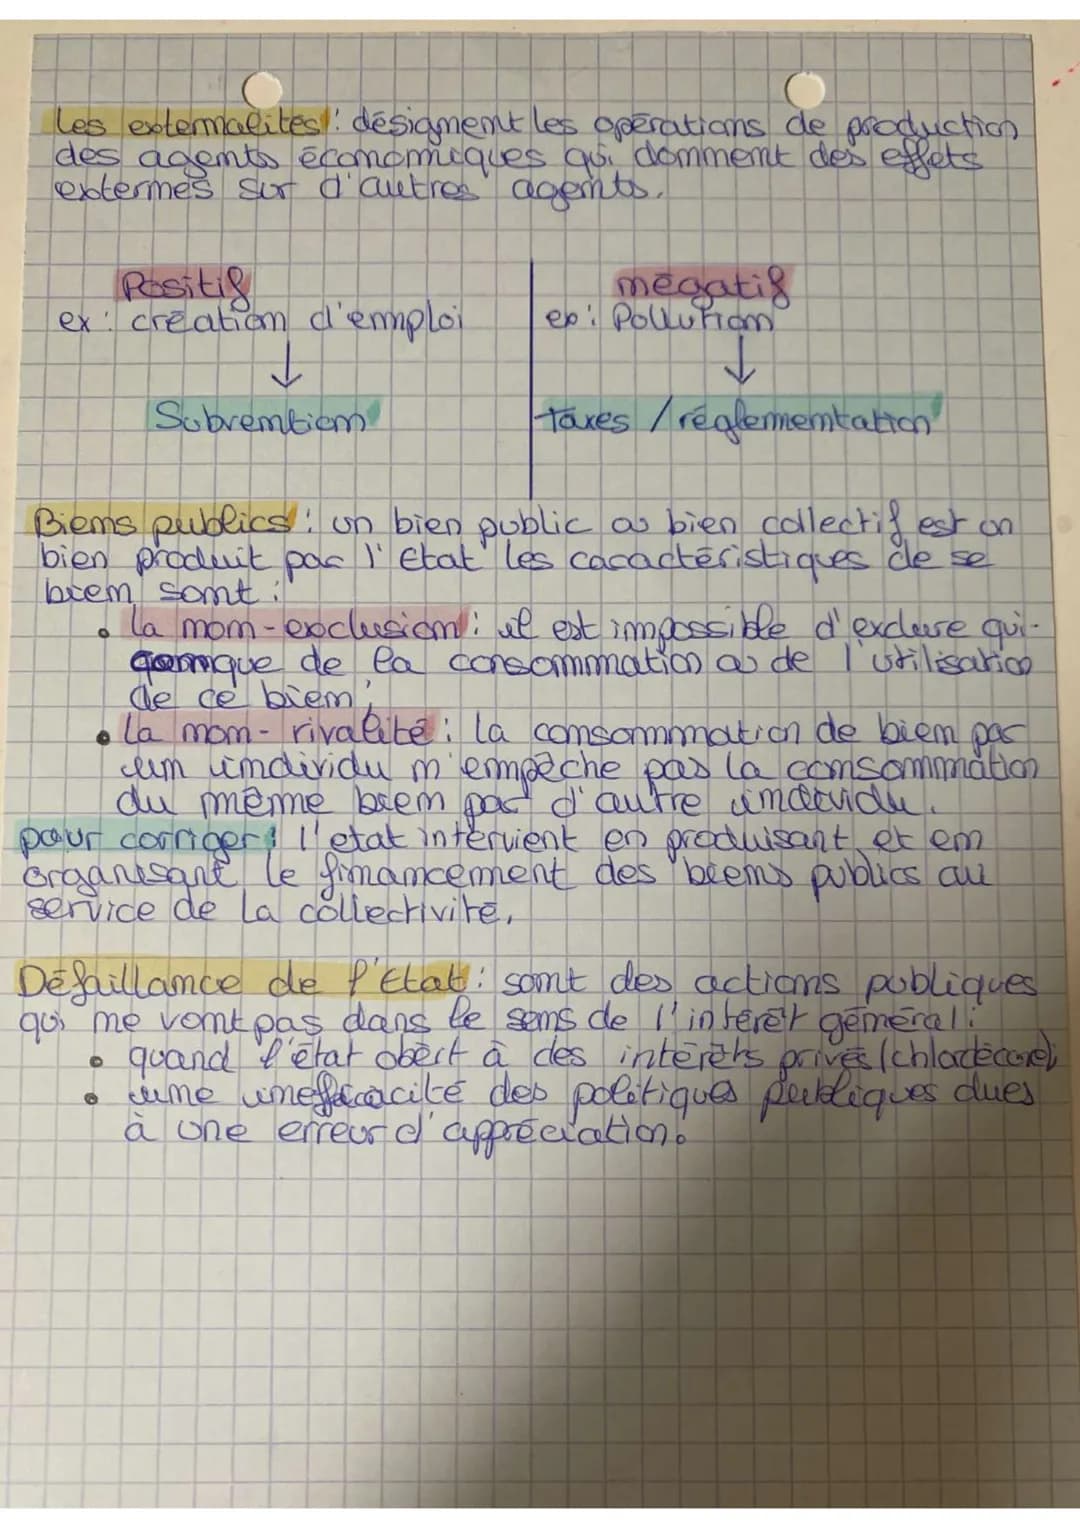 Les externalités : désignent les opérations de production
des agents économiques qui donnent des effets
externes sur d'autres agents.
Positif
négatif
ex : création d'emploi
ex : Pollution
Subvention
taxes / réglementation
Biens publics : un bien public ou bien collectif est un
bien produit par l'Etat les caractéristiques de se
bien sont :
• la non-exclusion : il est impossible d'exclure qui-
conque de la consommation ou de l'utilisation
de ce bien,
• la non-rivalité : la consommation de bien par
un individu n'empêche pas la consommation
du même bien par d'autre individu.
pour corriger : l'etat intervient en produisant et en
organisant le financement des biens publics au
service de la collectivité.
Défaillance de l'Etat : sont des actions publiques
qui ne vont pas dans le sens de l'intérêt général :
• quand l'état obéit à des intérêts privés (chlordécone)
• une inefficacité des politiques publiques dues
à une erreur d'appréciation.